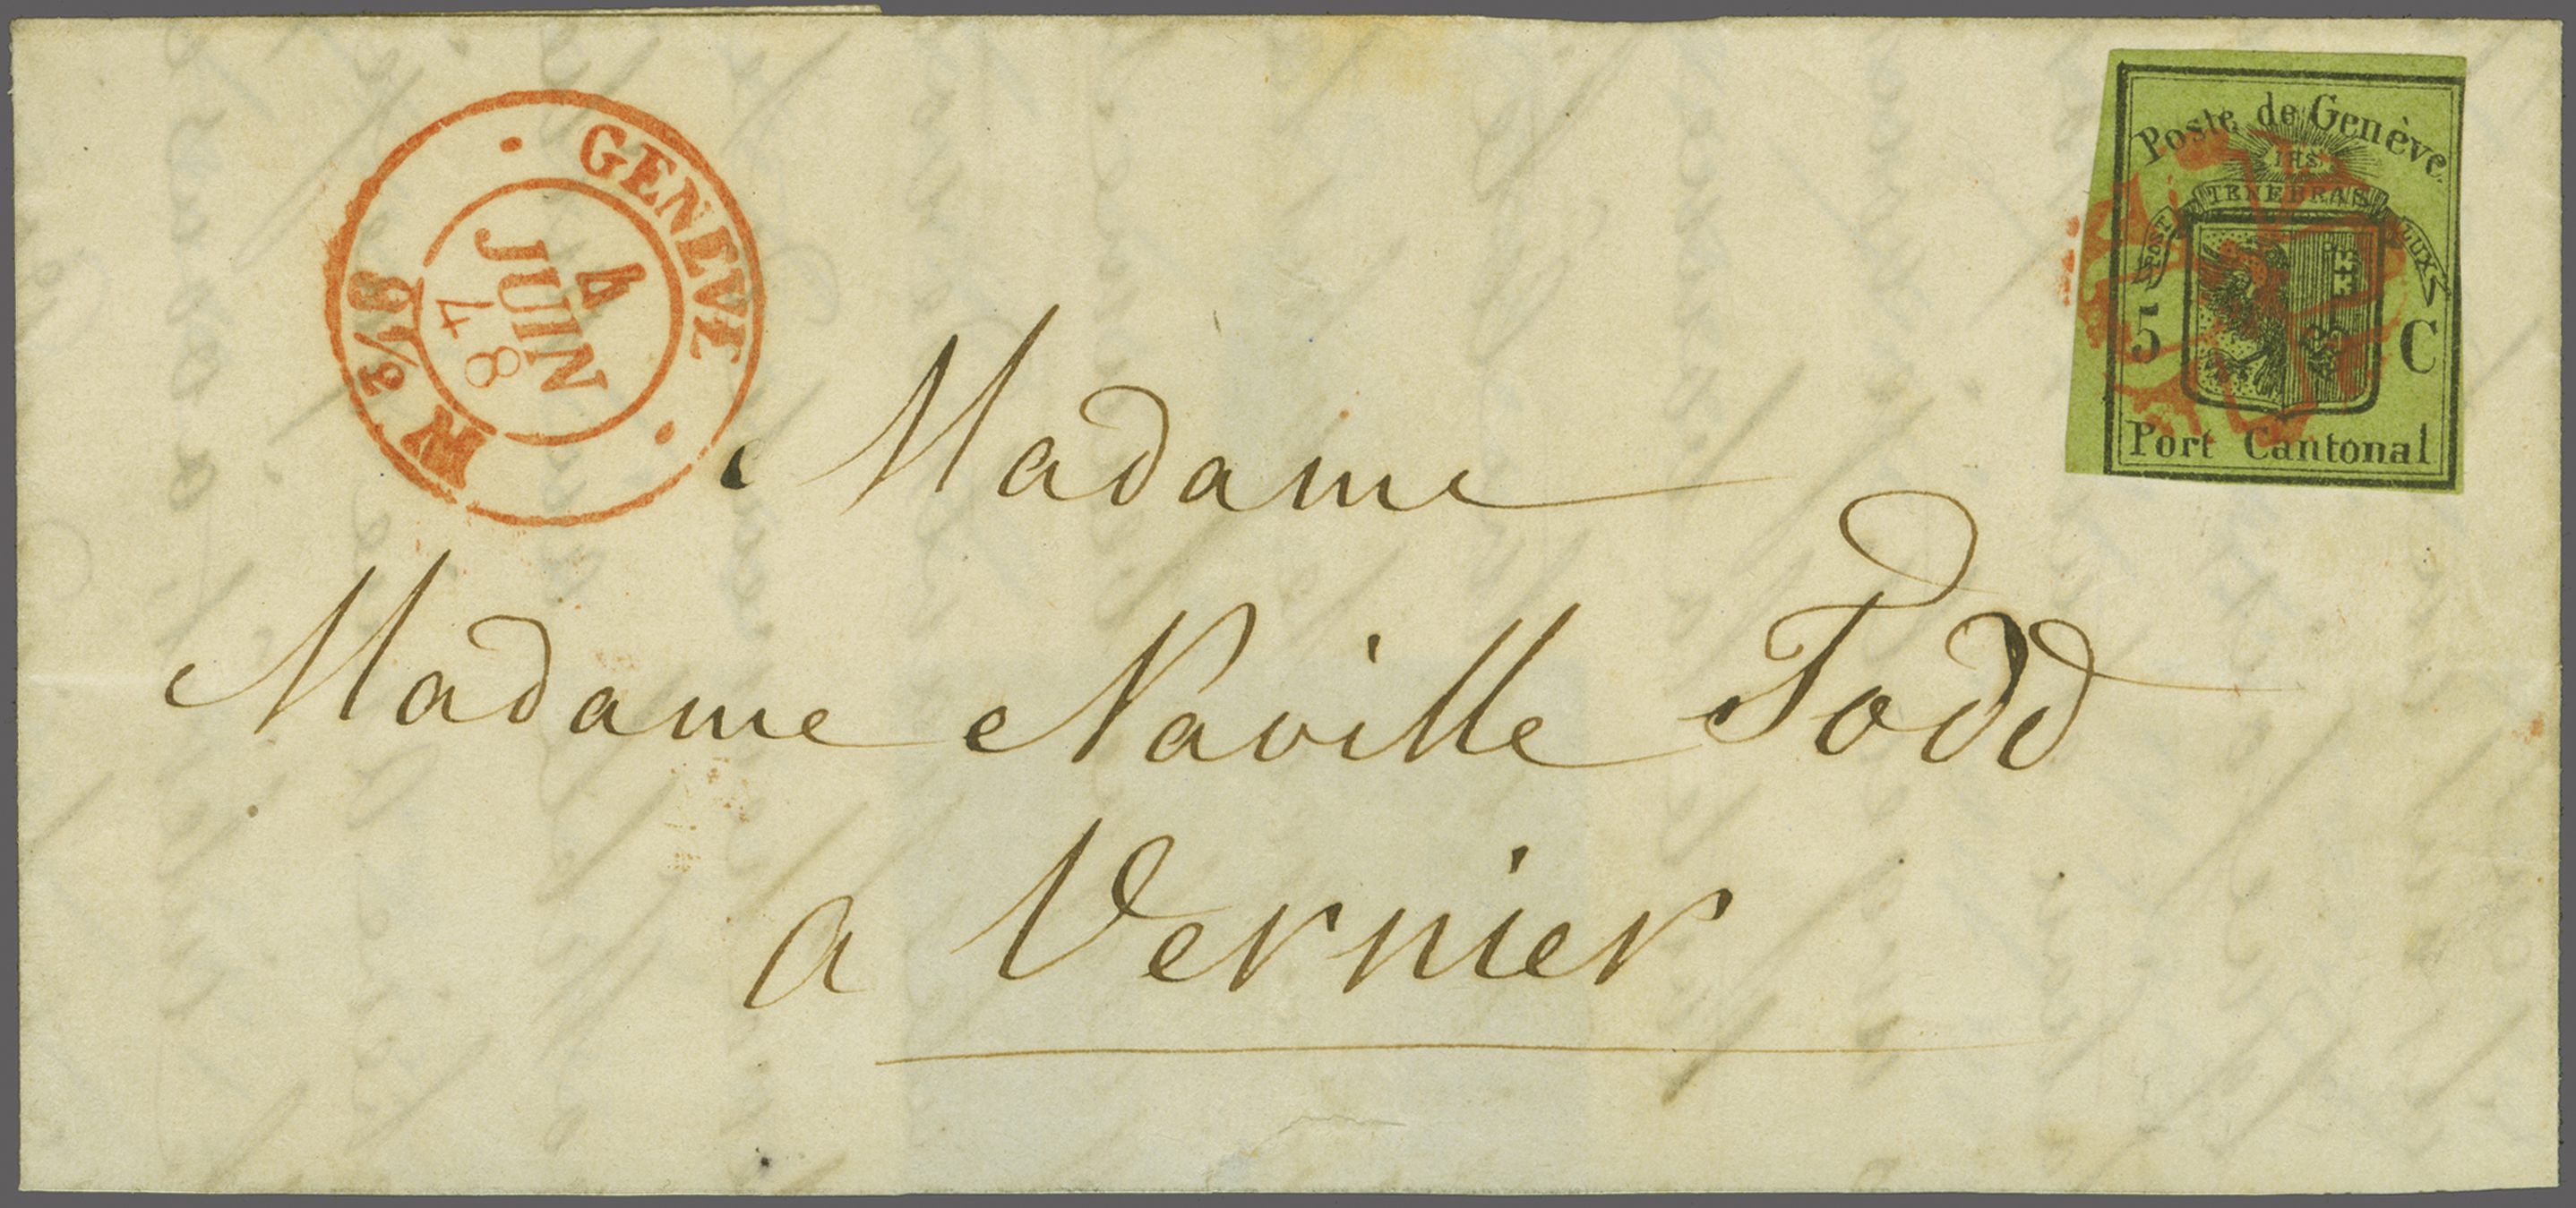 GENEVE
4
JUIN
48
M 8½
Poste de Genève.
IHS
POST TENEBRAS LUX
5 C
Port Cantonal
Madame
Madame Naville Todd
a Vernier